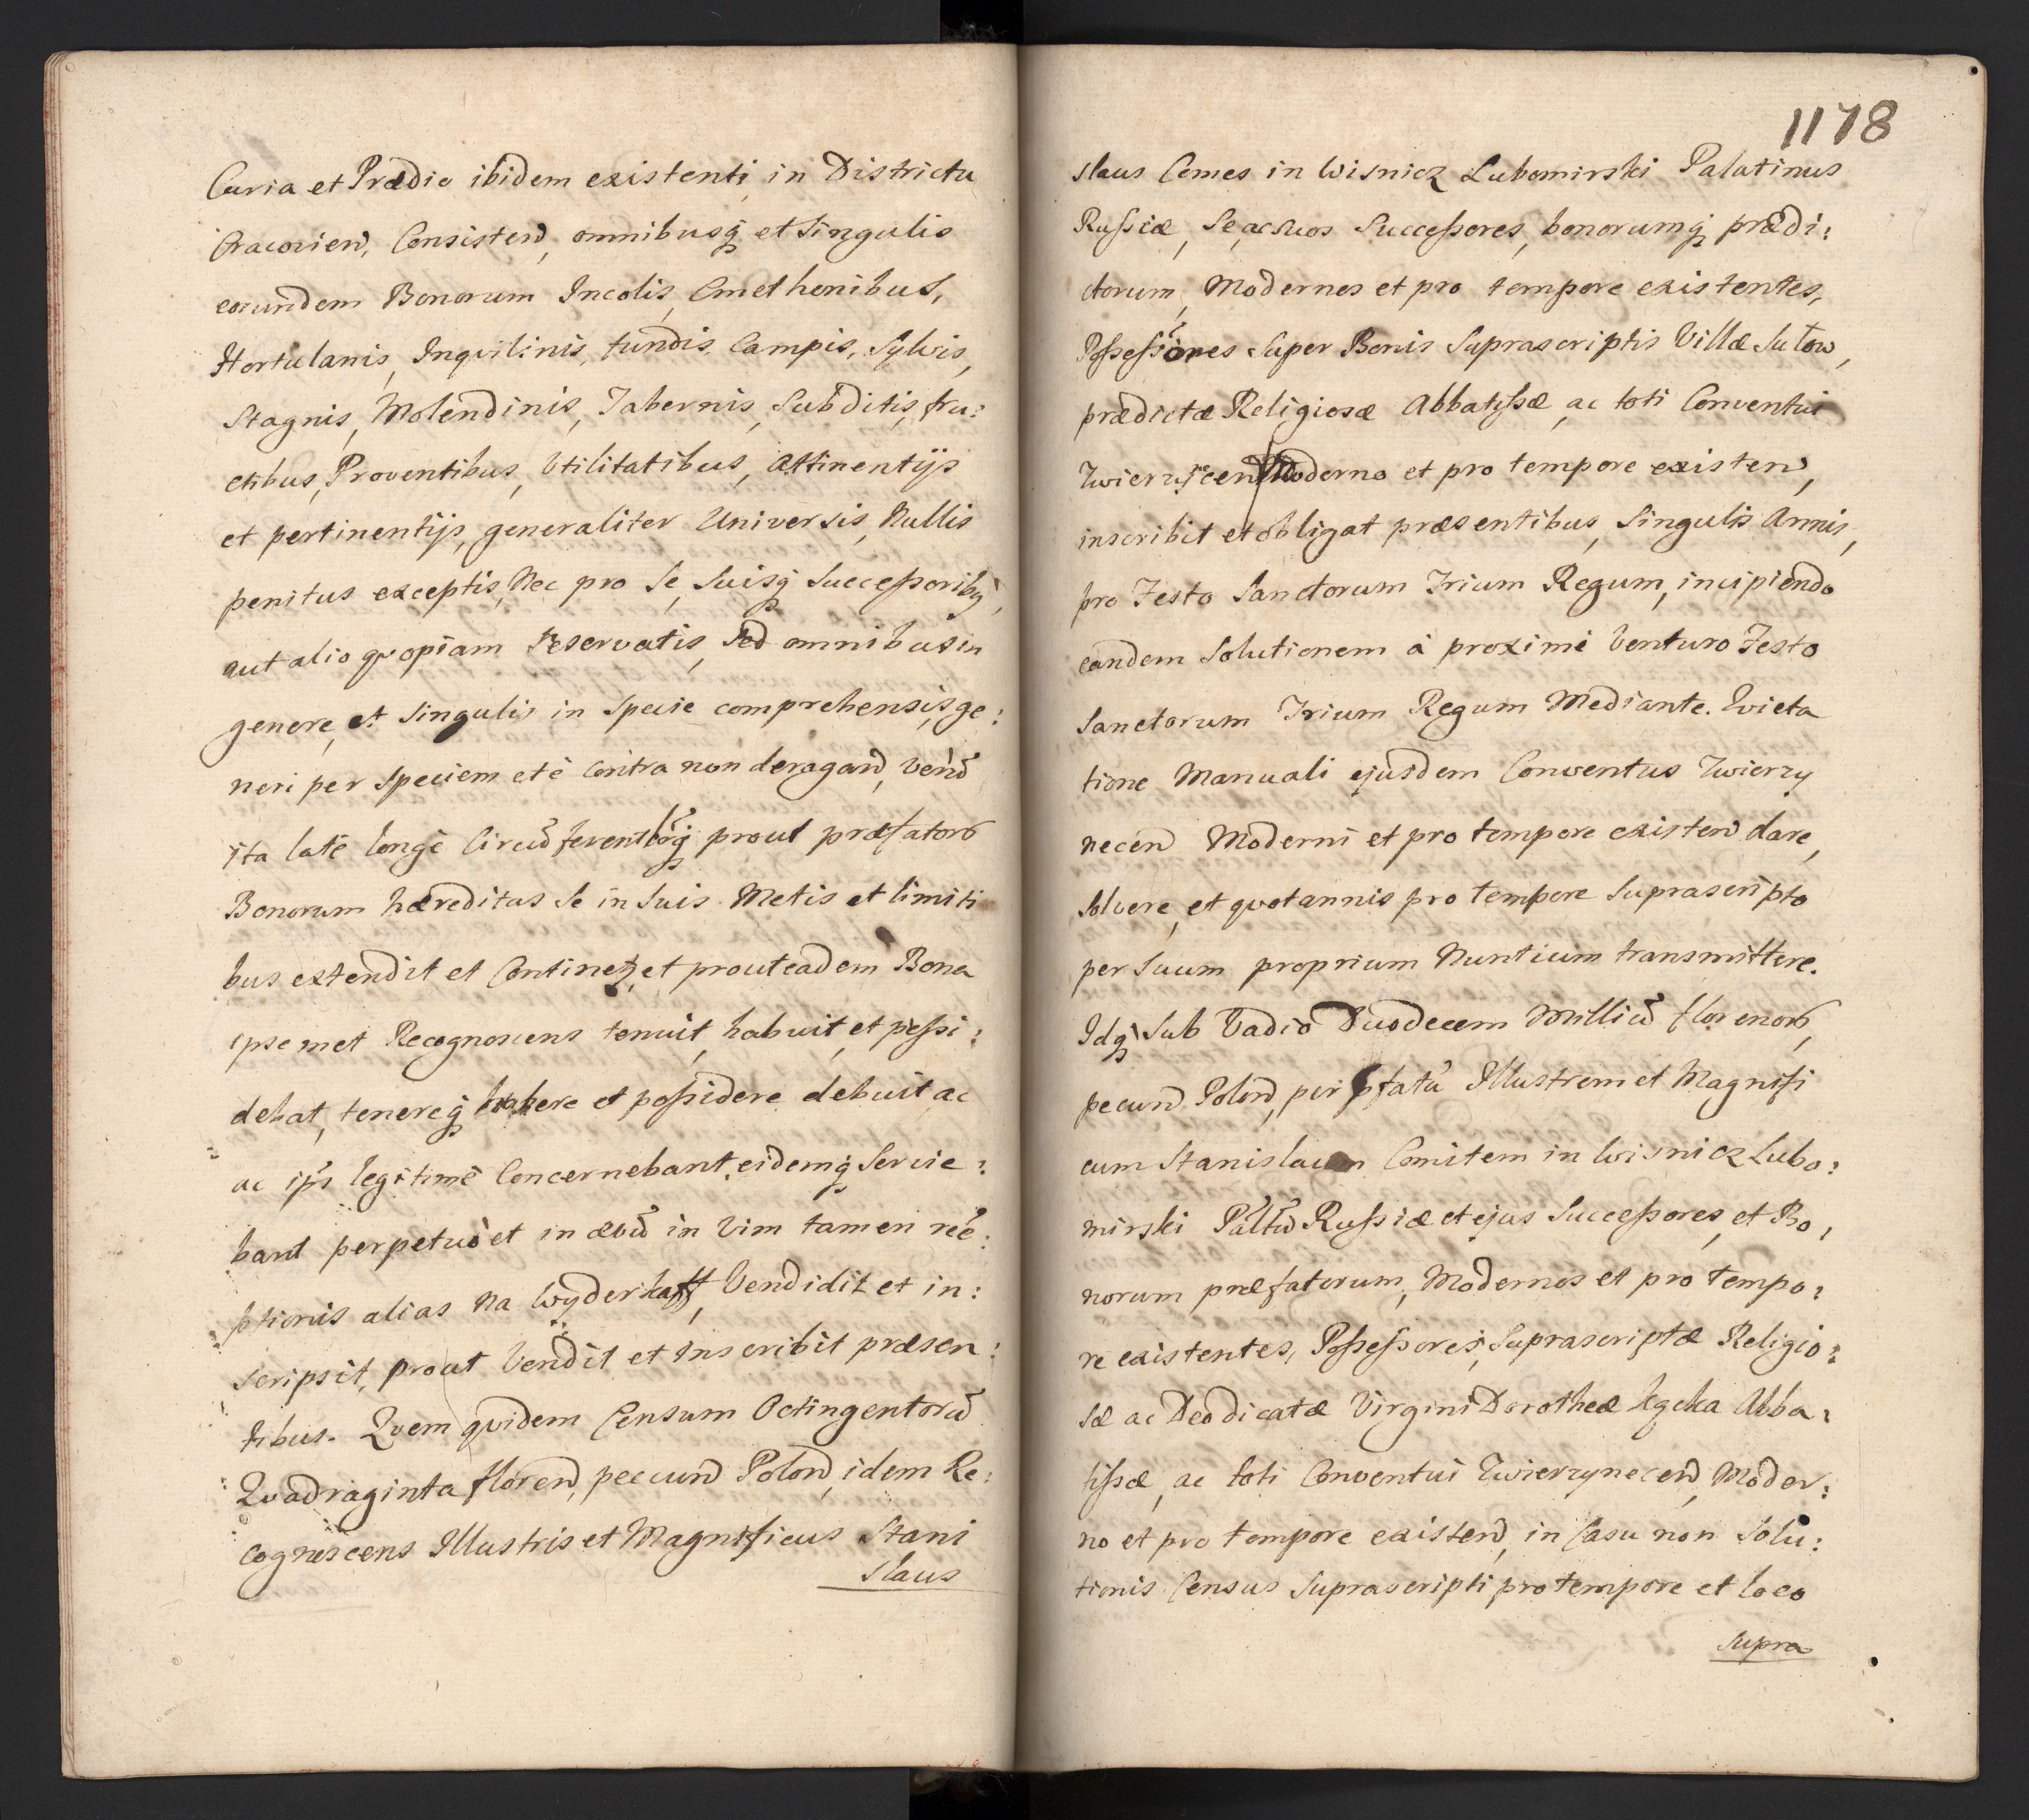 Curia et Prædio ibidem existenti, in Districtu
Cracovien, Consisten, omnibusq et Singulis
eorundem Bonorum Incolis, Cmethonibus,
Hortulanis, Inqvilinis, fundis, Campis, Sylvis,
Stagnis, Molendinis, Tabernis, Subditis, fru:
ctibus, Proventibus, Vtilitatibus, Attinentijs
et pertinentijs, generaliter Universis, Nullis
penitus exceptis, Nec pro Se, Suisq Successoribq,
aut alio qvopiam Reservatis, Sed omnibus in
genere, et Singulis in Specie comprehensis, ge:
neri per Speciem et è contra non derogand, vend
ita latè longè Circu ferentorq prout præfator
Bonorum hæreditas Se in Suis Metis et limiti
bus extendit et Continet, et prout eadem Bona
ipsemet Recognoscens tenuit, habuit, et possi:
debat, tenereq habere et possidere debuit ac
ac ipi legitimè Concernebant, eidemq Servie:
bant perpetuò et in ævu in Vim tamen reè:
ptionis alias na Wyderkaff, Vendidit et in:
scripsit, prout Vendit et Inscribit præsen:
tibus. Qvem qvidem Censum Octingentoru
Qvadraginta floren, pecun Polon, idem Re:
cognoscens Illustris et Magnificus Stani
Slaus
1178
slaus Comes in Wisnicz Lubomirski Palatinus
Russiæ, Se, ac Suos Successores, bonorumq prædi:
ctorum, Modernos et pro tempore existentes,
Possessores Super Bonis Suprascriptis Villæ Sułow,
prædictæ Religiosæ Abbatissæ, ac toti Conventui
Moderno et pro tempore existen,
inscribit et obligat præsentibus, Singulis Annis,
pro Festo Sanctorum Trium Regum, incipiendo
eandem Solutionem à proximè Venturo Festo
Sanctorum Trium Regum Mediante. Qvieta
tione Manuali ejusdem Conventus Zwierzy
necen Moderni et pro tempore existen dare,
solvere, et qvotannis pro tempore Suprascripto
per Suum proprium Nuntium transmittere.
Idq Sub Vadio Duodecem Milliu florenor,
pecun Polon, per pfatu Illustrem et Magnifi
cum Stanislaum Comitem in Wisnicz Lubo:
mirski Paltu Russiæ et ejus Successores, et Bo,
norum præfatorum, Modernos et pro tempo:
re existentes, Possessores, Suprascriptæ Religio:
sæ ac Deo dicatæ Virgini Dorotheæ Abba:
tissæ, ac toti Conventui Zwierzynecen, Moder:
no et pro tempore existen, in Casu non Solu:
tionis Census Suprascripti pro tempore et loco
Supra